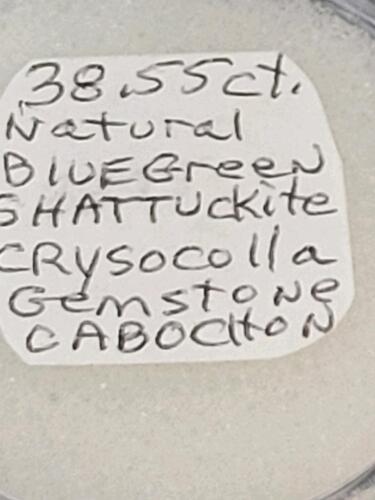 38.55ct.
Natural
BLUEGreeN
SHATTUCkite
CRysocolla
Gemstone
CABOCHON